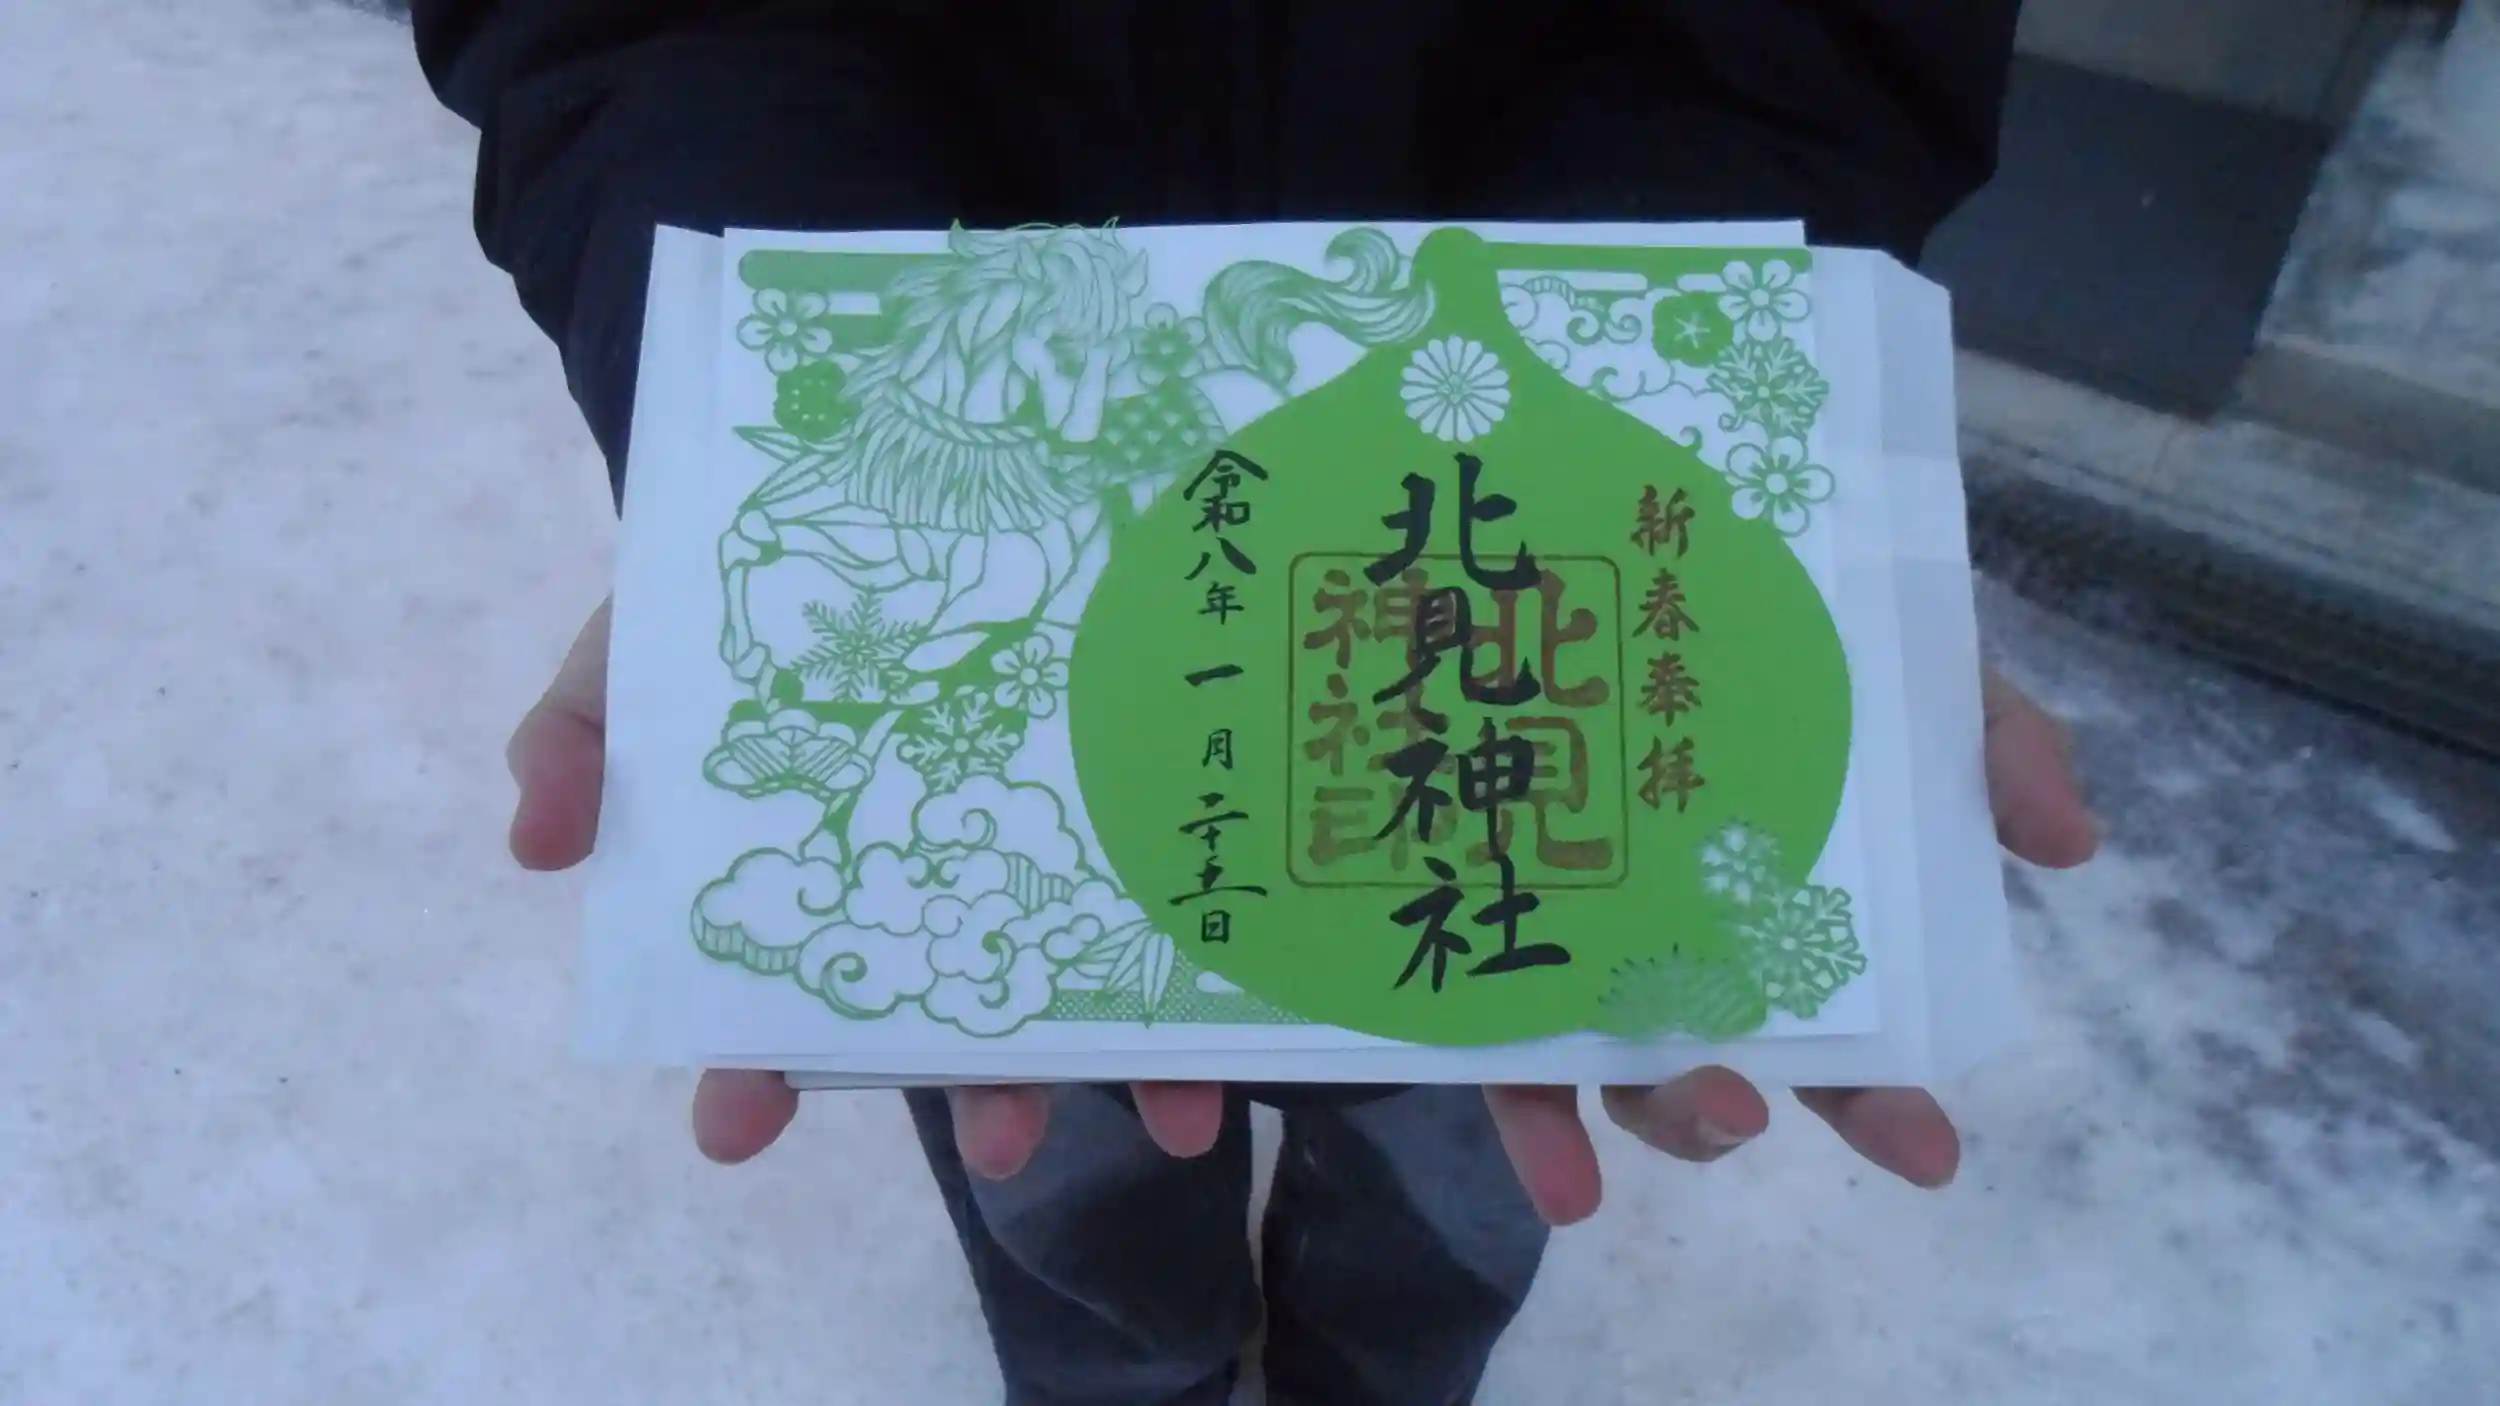 新春奉拝
北見神社
北見
神社印
令和八年一月二十五日